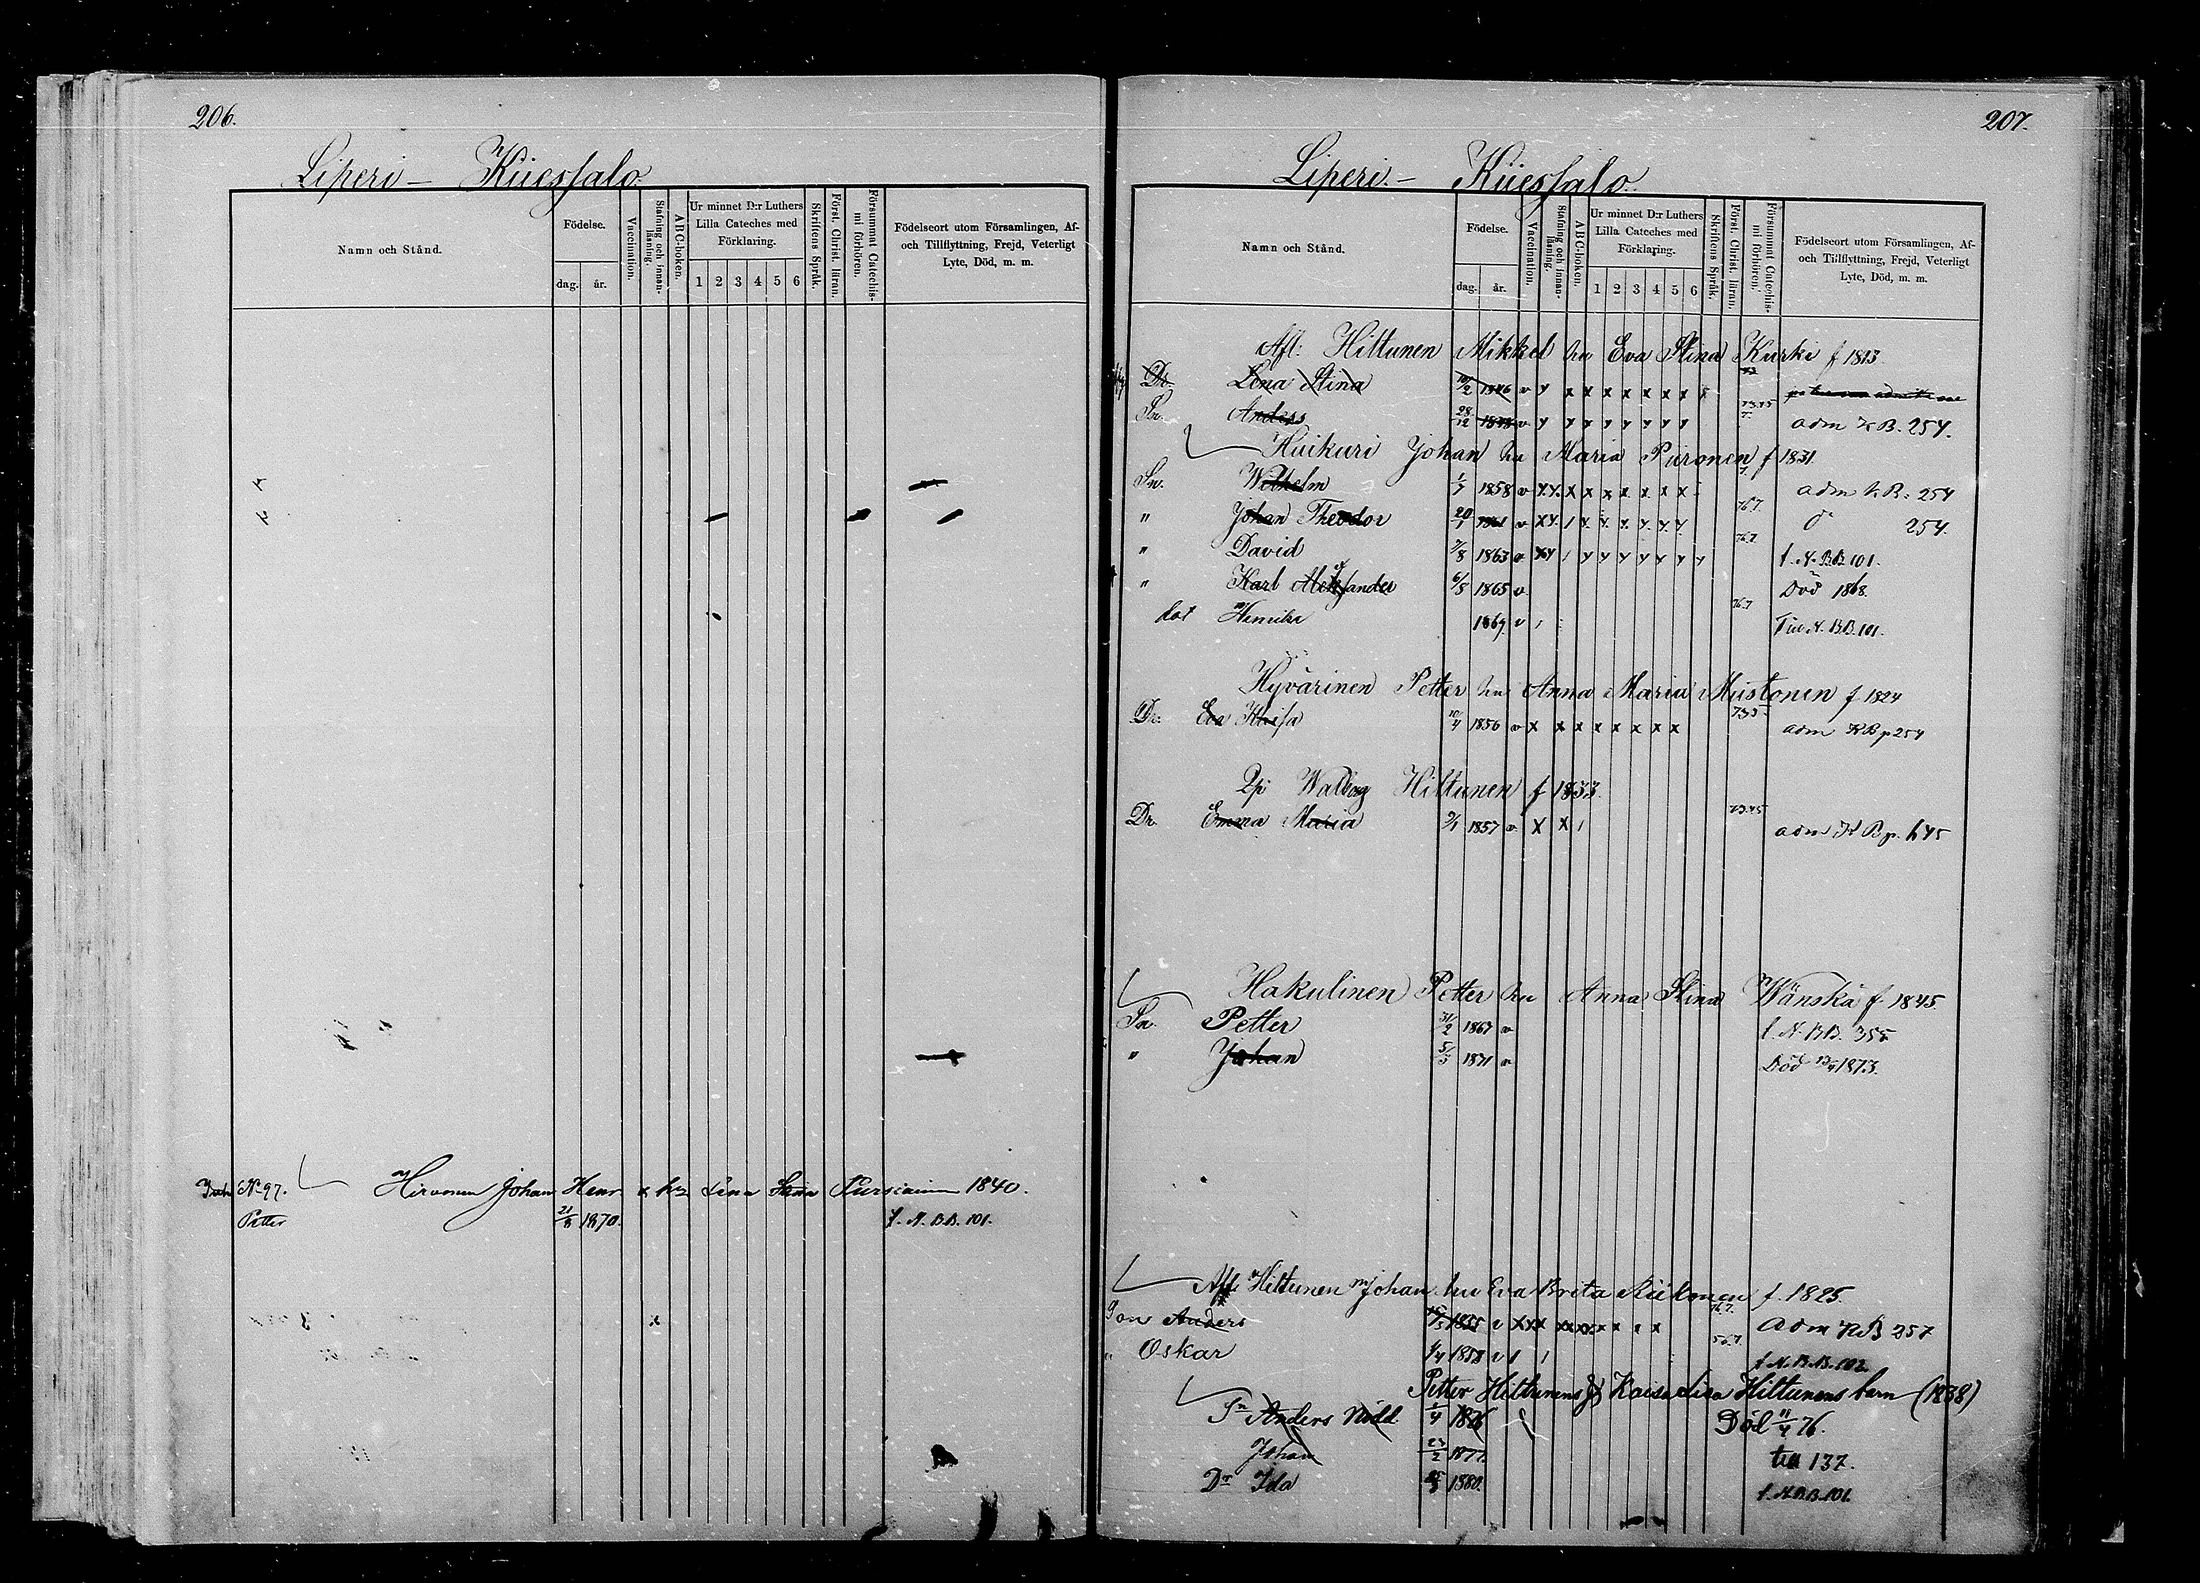 206.
Liperi – Kuessalo.
Namn och Stånd.
Födelse.
dag. år.
Vaccination.
Stafning och innanläsning.
ABC-boken.
Ur minnet D:r Luthers Lilla Cateches med Förklaring.
1 2 3 4 5 6
Skriftens Språk.
Först. Christ. läran.
Försummat Catechismi förhören.
Födelseort utom Församlingen, Af- och Tillflyttning, Frejd, Veterligt Lyte, Död, m. m.
No 97. Hirvonen Johan Henr. Lena Stina 1840.
Petter 21/8 1870. f. N. B.B. 101.
207.
Liperi. – Kuessalo.
Namn och Stånd.
Födelse.
dag. år.
Vaccination.
Stafning och innanläsning.
ABC-boken.
Ur minnet D:r Luthers Lilla Cateches med Förklaring.
1 2 3 4 5 6
Skriftens Språk.
Först. Christ. läran.
Försummat Catechismi förhören.
Födelseort utom Församlingen, Af- och Tillflyttning, Frejd, Veterligt Lyte, Död, m. m.
Afl: Hiltunen Mikkel hu Eva Stina Kurki f 1813
Dr. Lena Stina 10/2 1846 v
Sn. Anders 28/12 v adm K B. 254.
Huikuri Johan hu Maria Piironen f 1831.
Sn. Wilhelm 1/7 1858 v adm K B. 254
" Johan Theodor 20/1 1861 v 76.7. 254.
" David 7/8 1863 v 76.7. f. N. B.B. 101.
" Karl Aleksander 6/8 1865 v Död 1868.
Henrika 1869 v 76.7 N. B.B. 101.
Hyvärinen Petter hu Anna Maria Mustonen f 1824
Dr. Eva Kaisa 10/4 1856 v adm K B p 254
Pp Walborg Hiltunen f 1833.
Dr. Emma Maria 9/1 1857 v adm K B p. 645
Hakulinen Petter hu Anna Stina Wänskä f. 1845.
Sn. Petter 31/2 1867 v f. N. B.B. 355
" Johan 5/5 1871 v Död 1873.
Afl: Hiltunen Johan hu Eva Brita f. 1825.
Son Anders 1855 v 76.7. Adm K B 257
" Oskar 1/4 1858 v f. N. B.B. 102.
Petter Hiltunens Kaisa Lisa Hiltunens barn (1838)
Sn Anders 1/4 1876 Död 11/4 76.
Johan 23/2 1877. 137.
Dr Ida 1880. f. N.B.B. 101.